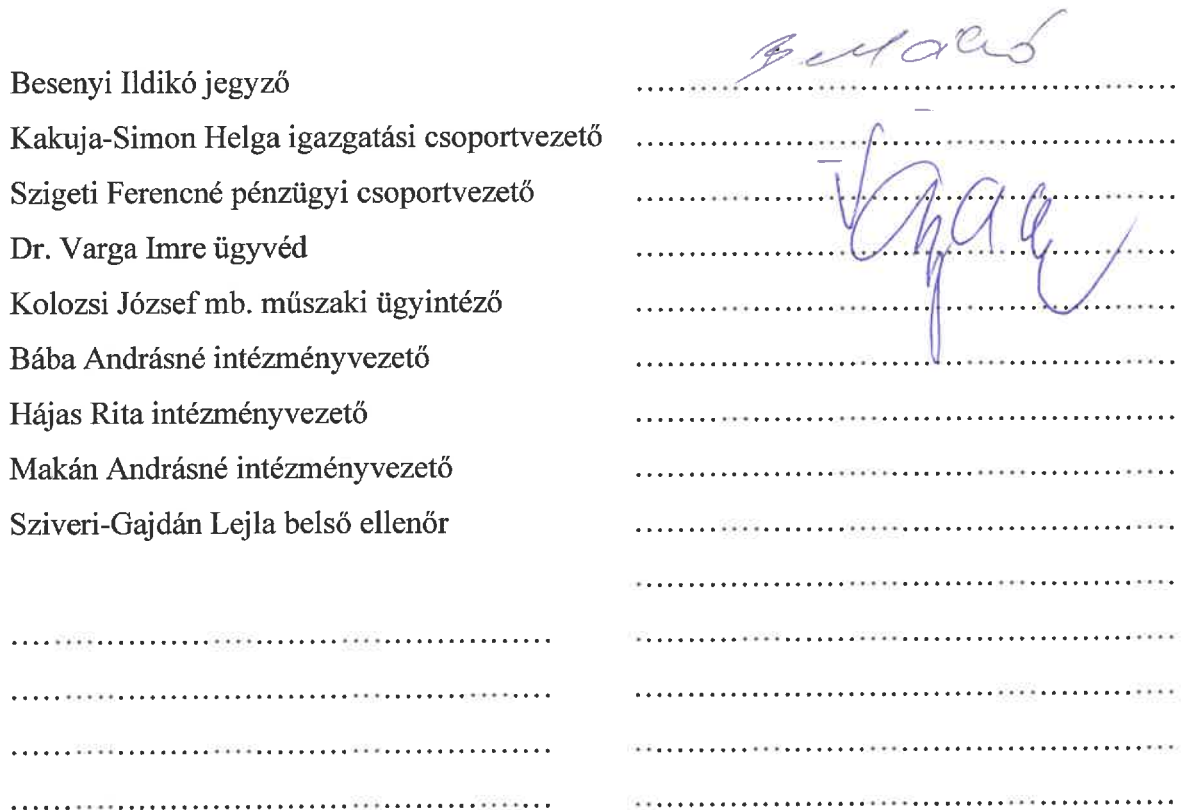 Besenyi Ildikó jegyző
Kakuja-Simon Helga igazgatási csoportvezető
Szigeti Ferencné pénzügyi csoportvezető
Dr. Varga Imre ügyvéd
Kolozsi József mb. műszaki ügyintéző
Bába Andrásné intézményvezető
Hájas Rita intézményvezető
Makán Andrásné intézményvezető
Sziveri-Gajdán Lejla belső ellenőr